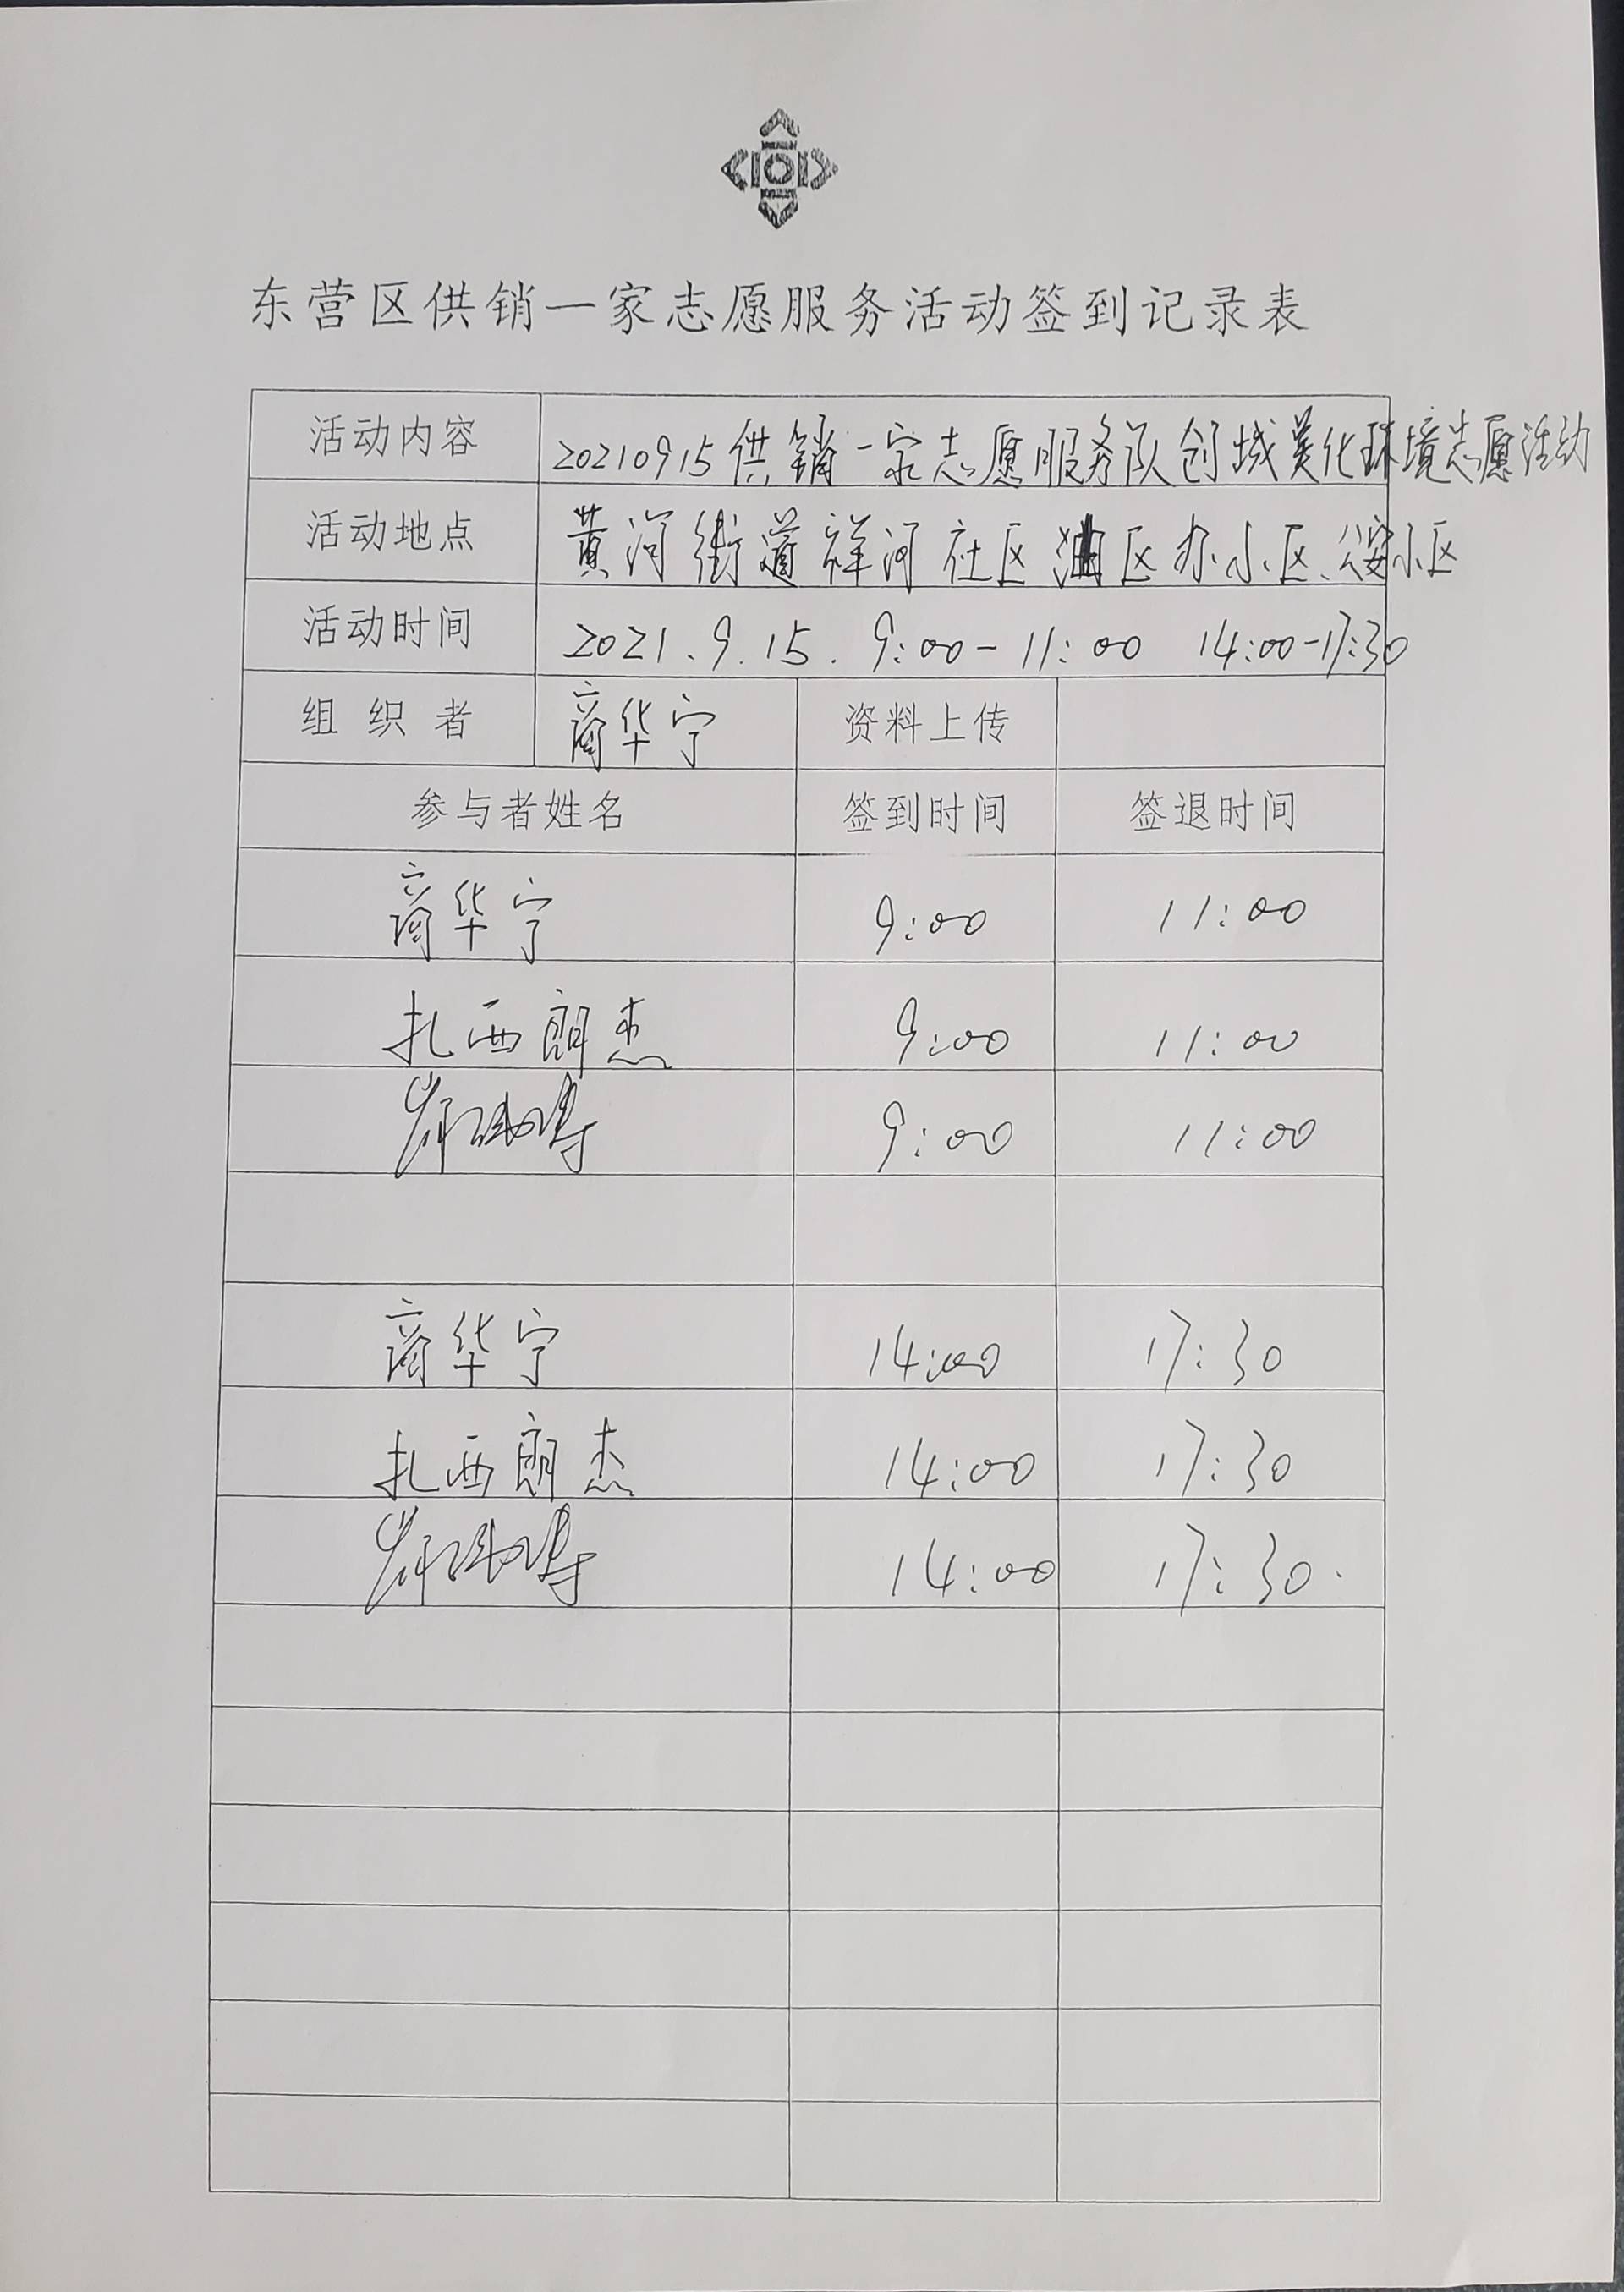 东营区供销一家志愿服务活动签到记录表
活动内容 20210915供销一家志愿服务队创城美化环境志愿活动
活动地点 黄河街道祥河社区油区办小区、公安小区
活动时间 2021.9.15. 9:00-11:00 14:00-17:30
组织者 商华宁 资料上传
参与者姓名 签到时间 签退时间
商华宁 9:00 11:00
扎西朗杰 9:00 11:00
9:00 11:00
商华宁 14:00 17:30
扎西朗杰 14:00 17:30
14:00 17:30.